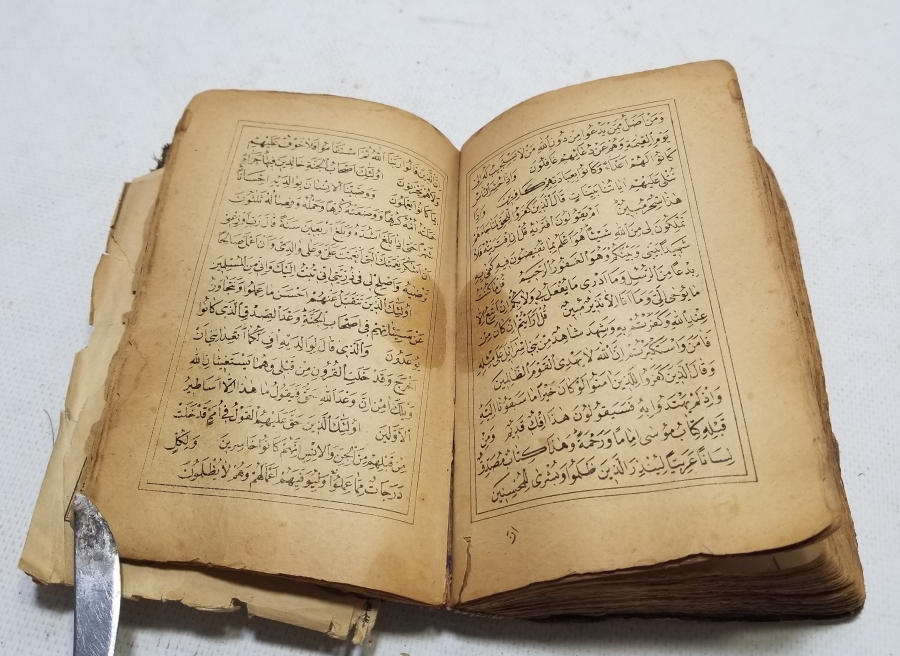 وَمَنْ اَضَلُّ مِمَّنْ يَدْعُوا مِنْ دُونِ اللّٰهِ مَنْ لَا يَسْتَجِيبُ لَهُ اِلٰى
يَوْمِ الْقِيٰمَةِ وَهُمْ عَنْ دُعَائِهِمْ غَافِلُونَ وَاِذَا حُشِرَ النَّاسُ
كَانُوا لَهُمْ اَعْدَاءً وَكَانُوا بِعِبَادَتِهِمْ كَافِرِينَ وَاِذَا
تُتْلٰى عَلَيْهِمْ اٰيَاتُنَا بَيِّنَاتٍ قَالَ الَّذِينَ كَفَرُوا لِلْحَقِّ لَمَّا جَاءَهُمْ
هٰذَا سِحْرٌ مُبِينٌ اَمْ يَقُولُونَ افْتَرٰيهُ قُلْ اِنِ افْتَرَيْتُهُ فَلَا
تَمْلِكُونَ لِي مِنَ اللّٰهِ شَيْئًا هُوَ اَعْلَمُ بِمَا تُفِيضُونَ فِيهِ كَفٰى بِهِ
شَهِيدًا بَيْنِي وَبَيْنَكُمْ وَهُوَ الْغَفُورُ الرَّحِيمُ قُلْ مَا كُنْتُ
بِدْعًا مِنَ الرُّسُلِ وَمَا اَدْرِي مَا يُفْعَلُ بِي وَلَا بِكُمْ اِنْ اَتَّبِعُ اِلَّا
مَا يُوحٰى اِلَيَّ وَمَا اَنَا اِلَّا نَذِيرٌ مُبِينٌ قُلْ اَرَاَيْتُمْ اِنْ كَانَ مِنْ
عِنْدِ اللّٰهِ وَكَفَرْتُمْ بِهِ وَشَهِدَ شَاهِدٌ مِنْ بَنِي اِسْرَائِيلَ عَلٰى مِثْلِهِ
فَاٰمَنَ وَاسْتَكْبَرْتُمْ اِنَّ اللّٰهَ لَا يَهْدِي الْقَوْمَ الظَّالِمِينَ
وَقَالَ الَّذِينَ كَفَرُوا لِلَّذِينَ اٰمَنُوا لَوْ كَانَ خَيْرًا مَا سَبَقُونَا اِلَيْهِ
وَاِذْ لَمْ يَهْتَدُوا بِهِ فَسَيَقُولُونَ هٰذَا اِفْكٌ قَدِيمٌ وَمِنْ
قَبْلِهِ كِتَابُ مُوسٰى اِمَامًا وَرَحْمَةً وَهٰذَا كِتَابٌ مُصَدِّقٌ
لِسَانًا عَرَبِيًّا لِيُنْذِرَ الَّذِينَ ظَلَمُوا وَبُشْرٰى لِلْمُحْسِنِينَ
ان
اِنَّ الَّذِينَ قَالُوا رَبُّنَا اللّٰهُ ثُمَّ اسْتَقَامُوا فَلَا خَوْفٌ عَلَيْهِمْ
وَلَا هُمْ يَحْزَنُونَ اُولٰئِكَ اَصْحَابُ الْجَنَّةِ خَالِدِينَ فِيهَا جَزَاءً
بِمَا كَانُوا يَعْمَلُونَ وَوَصَّيْنَا الْاِنْسَانَ بِوَالِدَيْهِ اِحْسَانًا
حَمَلَتْهُ اُمُّهُ كُرْهًا وَوَضَعَتْهُ كُرْهًا وَحَمْلُهُ وَفِصَالُهُ ثَلٰثُونَ
شَهْرًا حَتّٰى اِذَا بَلَغَ اَشُدَّهُ وَبَلَغَ اَرْبَعِينَ سَنَةً قَالَ رَبِّ اَوْزِعْنِي
اَنْ اَشْكُرَ نِعْمَتَكَ الَّتِي اَنْعَمْتَ عَلَيَّ وَعَلٰى وَالِدَيَّ وَاَنْ اَعْمَلَ صَالِحًا
تَرْضٰيهُ وَاَصْلِحْ لِي فِي ذُرِّيَّتِي اِنِّي تُبْتُ اِلَيْكَ وَاِنِّي مِنَ الْمُسْلِمِينَ
اُولٰئِكَ الَّذِينَ نَتَقَبَّلُ عَنْهُمْ اَحْسَنَ مَا عَمِلُوا وَنَتَجَاوَزُ
عَنْ سَيِّئَاتِهِمْ فِي اَصْحَابِ الْجَنَّةِ وَعْدَ الصِّدْقِ الَّذِي كَانُوا
يُوعَدُونَ وَالَّذِي قَالَ لِوَالِدَيْهِ اُفٍّ لَكُمَا اَتَعِدَانِنِي اَنْ
اُخْرَجَ وَقَدْ خَلَتِ الْقُرُونُ مِنْ قَبْلِي وَهُمَا يَسْتَغِيثَانِ اللّٰهَ
وَيْلَكَ اٰمِنْ اِنَّ وَعْدَ اللّٰهِ حَقٌّ فَيَقُولُ مَا هٰذَا اِلَّا اَسَاطِيرُ
الْاَوَّلِينَ اُولٰئِكَ الَّذِينَ حَقَّ عَلَيْهِمُ الْقَوْلُ فِي اُمَمٍ قَدْ خَلَتْ
مِنْ قَبْلِهِمْ مِنَ الْجِنِّ وَالْاِنْسِ اِنَّهُمْ كَانُوا خَاسِرِينَ وَلِكُلٍّ
دَرَجَاتٌ مِمَّا عَمِلُوا وَلِيُوَفِّيَهُمْ اَعْمَالَهُمْ وَهُمْ لَا يُظْلَمُونَ